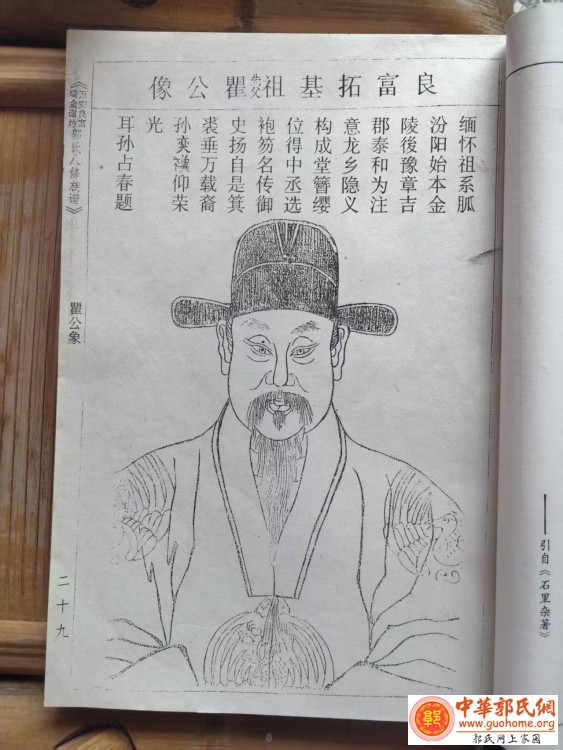 良富拓基祖瞿公像
缅怀祖系胍
汾阳始本金
陵後豫章吉
郡泰和为注
意龙乡隐义
构成堂簪缨
位得中丞选
袍笏名传御
史扬自是箕
裘垂万载裔
孙奕仰荣
光
耳孙占春题
《万安良富
郭氏八修族谱》
瞿公象
二十九
——引自《石里杂著》
中華郭氏網
www.guohome.org
郭氏网上家园